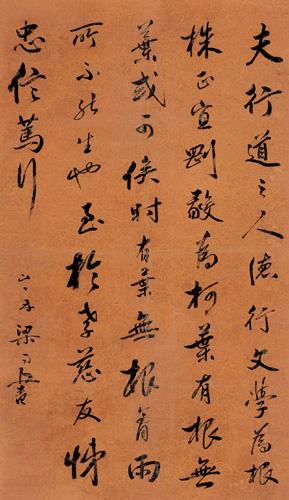 夫行道之人德行文學為根
株正直剛毅為柯葉有根無
葉或可俟時有葉無根膏雨
所不能生也至於孝慈友悌
忠信篤行
梁同書